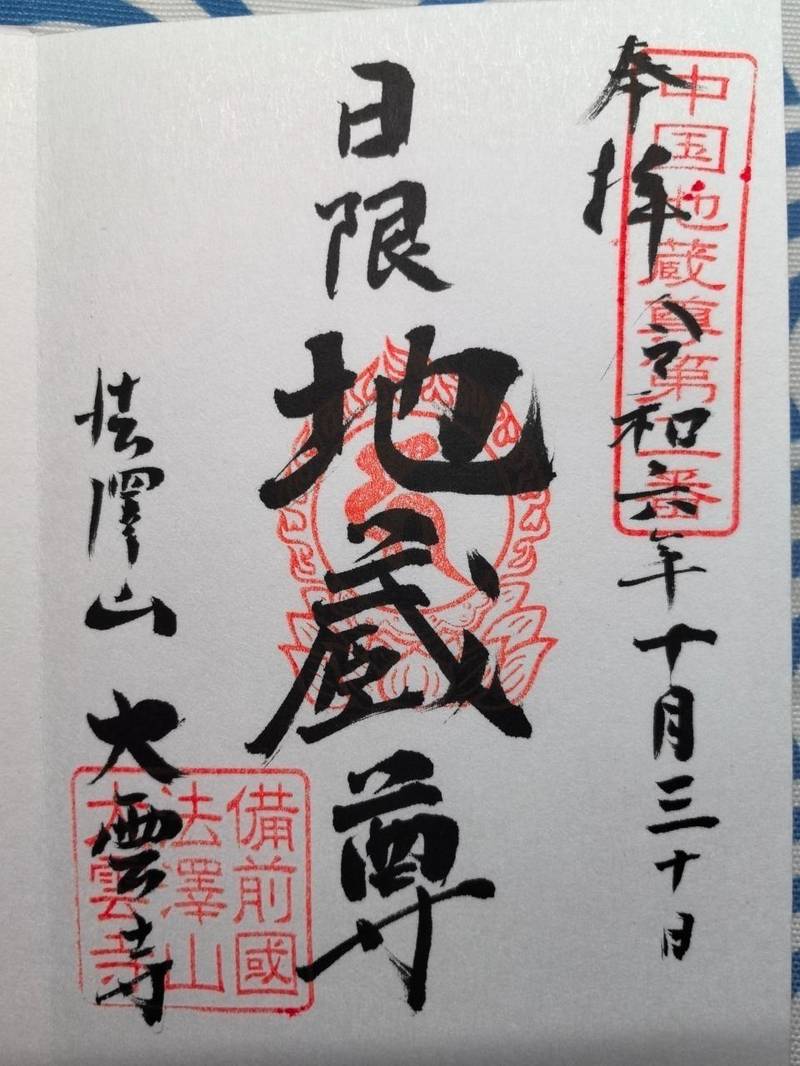 奉拝 令和六年十月三十日
中国地蔵尊第 番
日限
地蔵尊
法澤山 大雲寺
備前國
法澤山
大雲寺